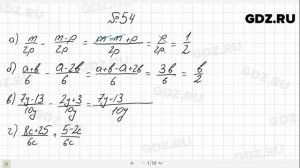 GDZ.RU
№54
а) m/2p - m-p/2p = m-m+p/2p = p/2p = 1/2
б) a+b/6 - a-2b/6 = a+b-a+2b/6 = 3b/6 = b/2
в) 7y-13/10y - 2y+3/10y = 7y-13/10y
г) 8c+25/6c 5-2c/6c
GDZ.RU